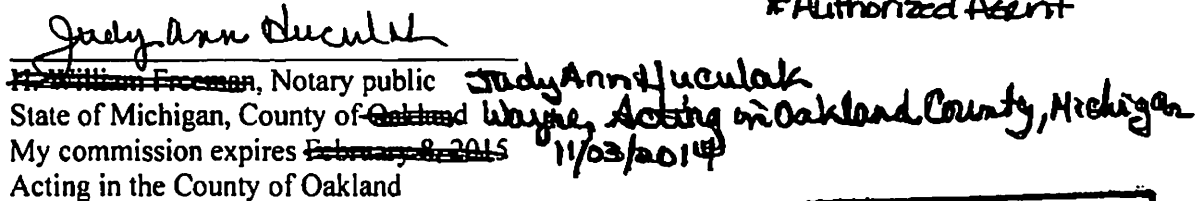 * Authorized Agent
Judy Ann Huculak
H. William Freeman, Notary public Judy Ann Huculak
State of Michigan, County of Oakland Wayne, Acting in Oakland County, Michigan
My commission expires February 8, 2015 11/03/2014
Acting in the County of Oakland